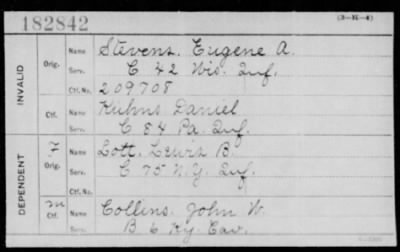 182842
(3-JL-4)
INVALID
Orig. Name Stevens, Eugene A.
Serv. C 42 Wis. Inf.
Ctf. No. 209708
Ctf. Name Kuhns Daniel
Serv. C 84 Pa. Inf.
DEPENDENT
F Orig. Name Lott, Lewis B.
Serv. C 75 N.Y. Inf.
Ctf. No.
M Ctf. Name Collins, John W.
Serv. B 6 Ky. Cav.